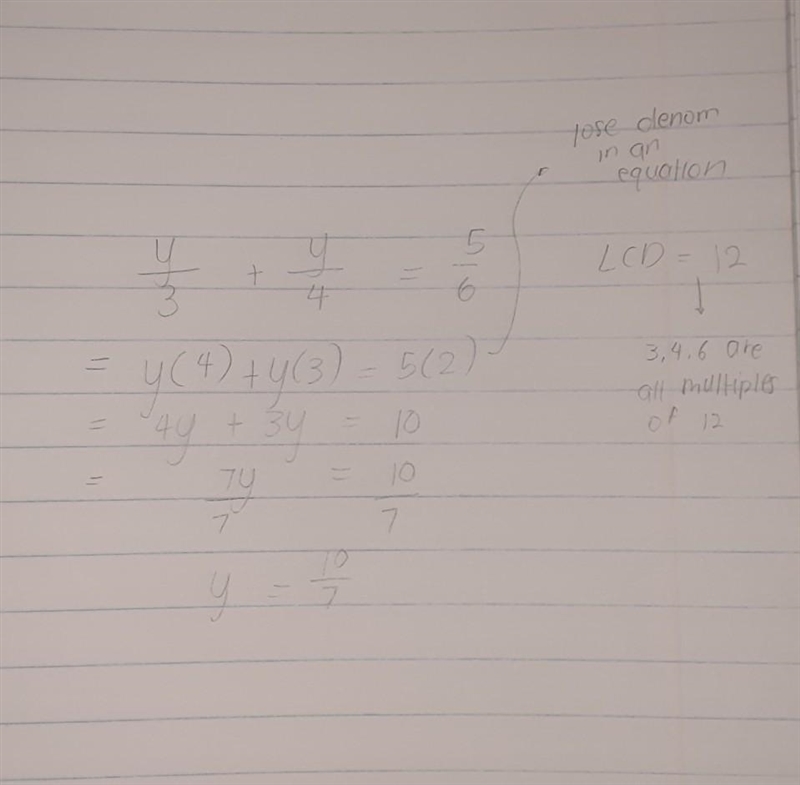 lose denom
in an
equation
y/3 + y/4 = 5/6
LCD = 12
↓
= y(4) + y(3) = 5(2)
3,4,6 are
all multiples
of 12
= 4y + 3y = 10
= 7y/7 = 10/7
y = 10/7